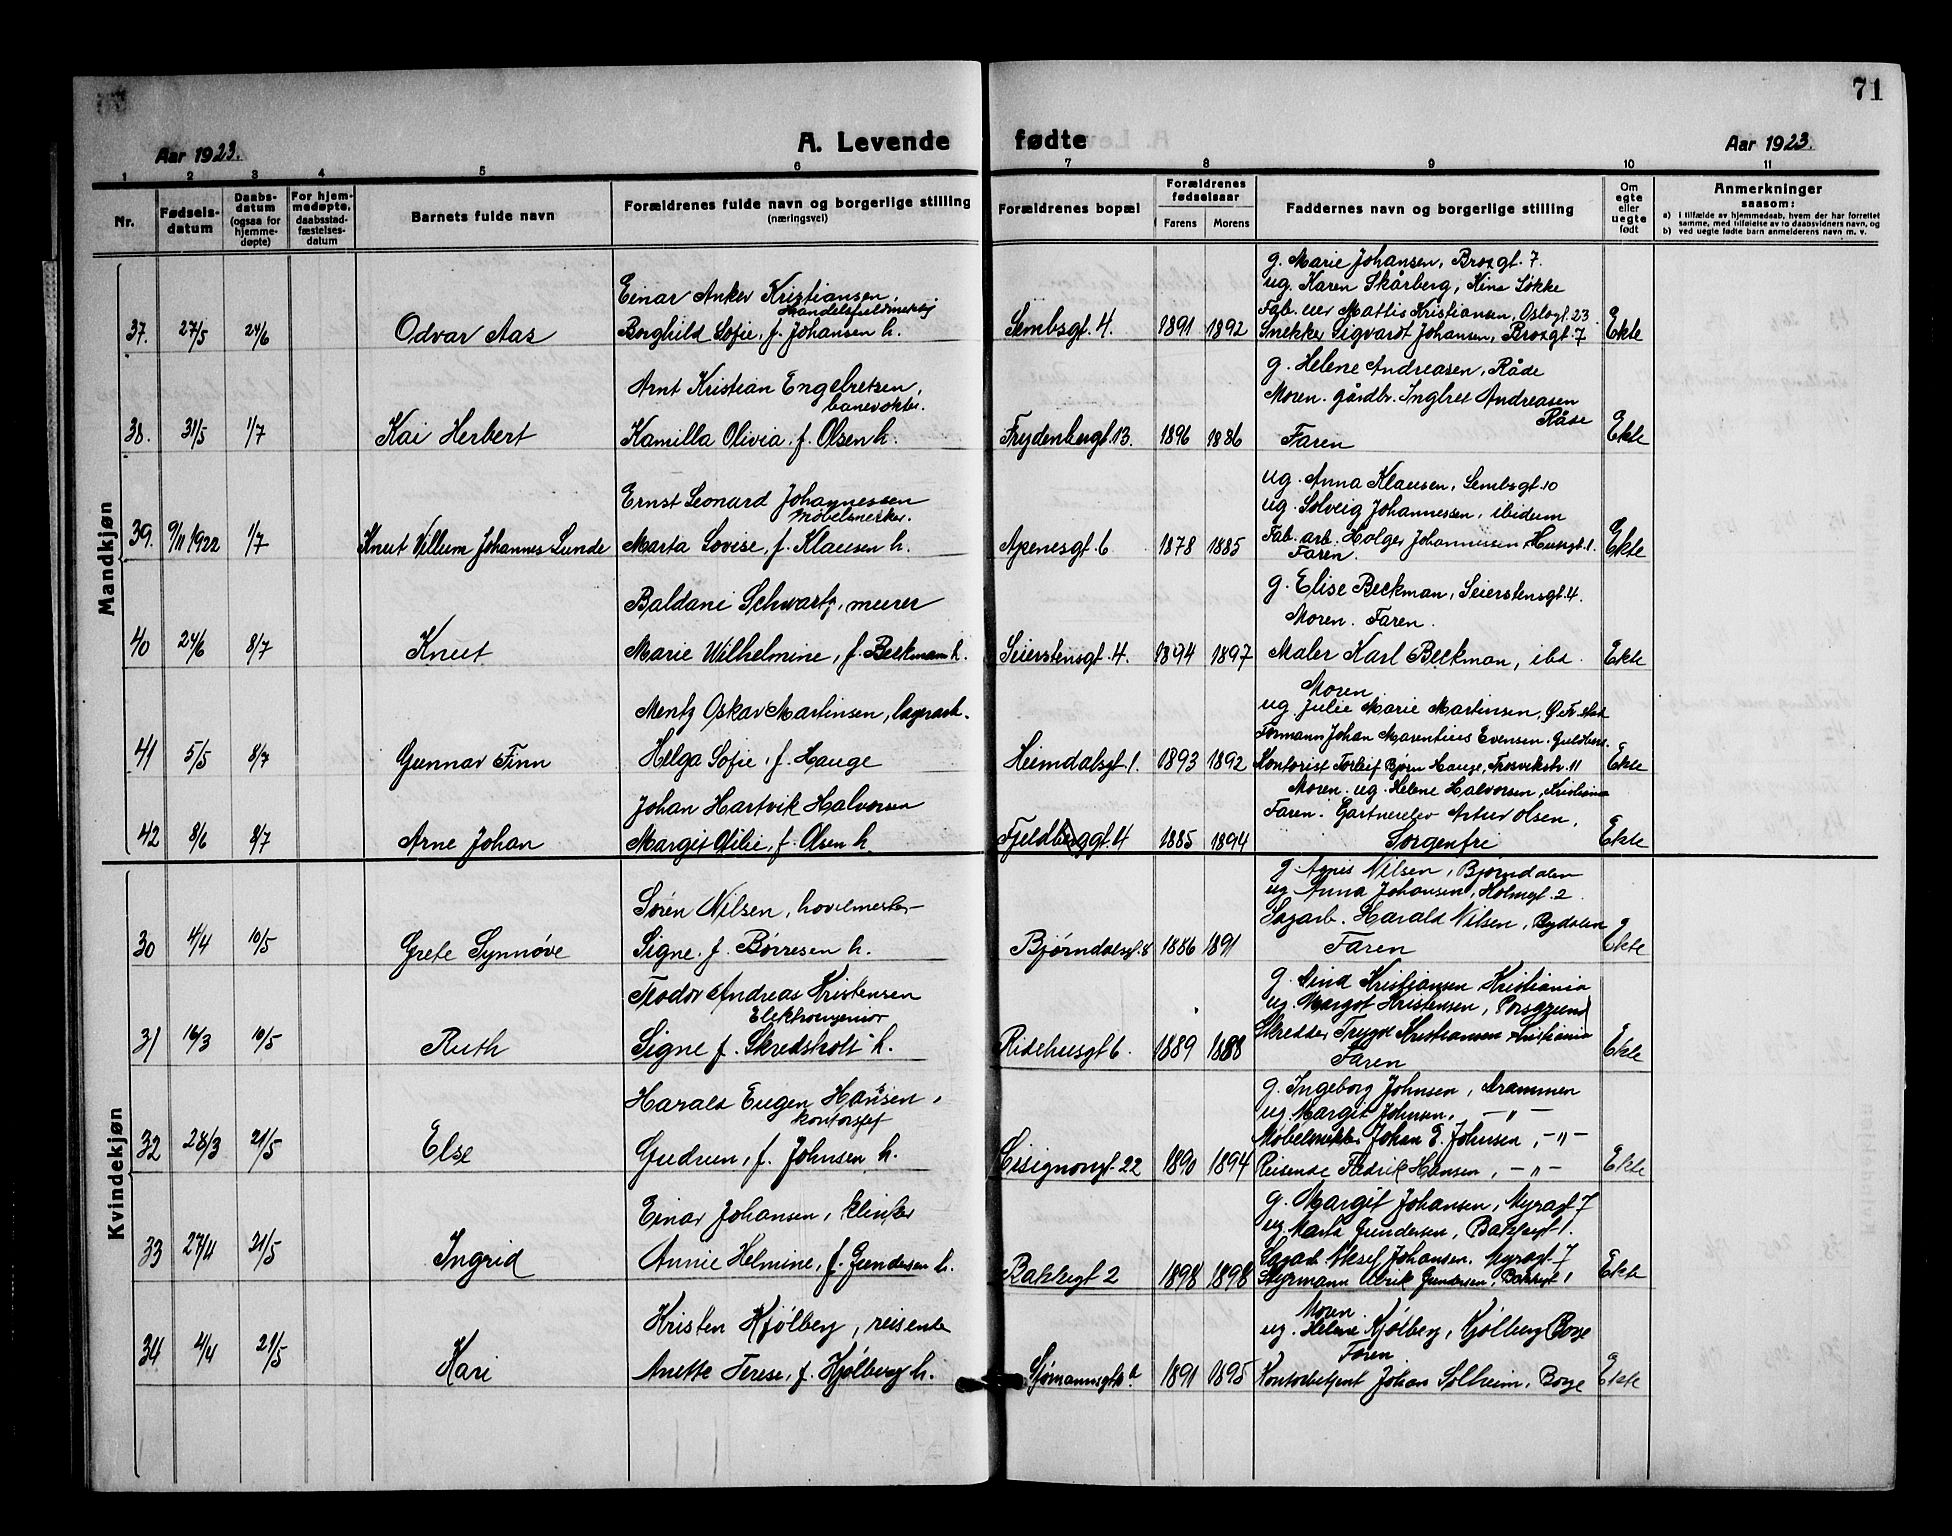 71
Aar 1923.
A. Levende fødte
Aar 1923.
1 2 3 4 5 6 7 8 9 10 11
Nr.
Fødsels-
datum
Daabs-
datum
(ogsaa for
hjemme-
døpte)
For hjem-
medøpte,
daabsstad-
fæstelses-
datum
Barnets fulde navn
Forældrenes fulde navn og borgerlige stilling
(næringsvei)
Forældrenes bopæl
Forældrenes
fødselsaar
Farens Morens
Faddernes navn og borgerlige stilling
Om
egte
eller
uegte
født
Anmerkninger
saasom:
a) I tilfælde av hjemmedaab, hvem der har forrettet
samme, med tilføielse av to daabsvidners navn, og
b) ved uegte fødte barn anmelderens navn m. v.
Mandkjøn
37. 27/5 24/6 Odvar Aas
Einar Anker Kristiansen,
Handelsfuldmektig
Borghild Sofie, f. Johansen h.
Sembsgt. 4. 1891 1892
g. Marie Johansen, Brogt. 7.
ug. Karen Skårberg, Kina Løkke
Fab. Mattis Kristiansen, Oslogt. 23
Snekker Sigvardt Johansen, Brogt. 7
Ekte
38. 31/5 1/7 Kai Herbert
Arnt Kristian Engebretsen,
banevokter.
Kamilla Olivia, f. Olsen h.
Frydenbergt. 13. 1896 1886
g. Helene Andreasen, Råde
Moren. gårdbr. Inglret Andreasen
Råde
Faren
Ekte
39. 9/11 1922 1/7 Knut Villum Johannes Lunde
Ernst Leonard Johannessen
Møbelsnekker.
Marta Lovise, f. Klausen h.
Apenesgt. 6 1878 1885
ug. Anna Klausen, Sembsgt. 10
ug. Solveig Johannessen, ibidum
Fab. arb. Holger Johannessen, Husgt. 1.
Faren.
Ekte
40 24/6 8/7 Knut
Baldani Schwartz, murer
Marie Wilhelmine, f. Beckman h.
Seierstensgt. 4. 1894 1897
g. Elise Beckman, Seierstensgt. 4.
Moren. Faren.
Maler Karl Beckman, ibd.
Ekte
41 5/5 8/7 Gunnar Finn
Mentz Oskar Martinsen, lagerarb.
Helga Sofie, f. Hauge
Heimdalsgt. 1. 1893 1892
Moren.
ug Julie Marie Martinsen,
Formann Johan Marentius Evensen, Guldberg.
Kontorist Torleif Bjørn Hauge, Trosvikstr. 11
Ekte
42 8/6 8/7 Arne Johan
Johan Hartvik Halvorsen
Margit Otilie, f. Olsen h.
Fjeldberggt. 4 1885 1894
Moren. ug. Helene Halvorsen, Kristiania
Faren. Gartnerelev Artur Olsen,
Sorgenfri
Ekte
Kvindekjøn
30 4/4 10/5 Grete Synnøve
Søren Nilsen, hovelmester
Signe, f. Børresen h.
Bjørndalsgt. 8 1886 1891
g. Agnes Nilsen, Bjørndalen
ug. Anna Johansen, Holmegt. 2
Sagarb. Harald Nilsen, Bydalen
Faren
Ekte
31 16/3 10/5 Ruth
Teodor Andreas Kristensen
Elektroingeniør
Signe f. Skredsholt h.
Ridehusgt 6. 1889 1888
g. Aina Kristiansen Kristiania
ug. Margot Kristensen, Porsgrund
Skredder Trygve Kristiansen Kristiania
Faren
Ekte
32 28/3 21/5 Else
Harald Eugen Hansen,
Kontorsjef
Gudrun, f. Johnsen h.
Cisignongt. 22 1890 1894
g. Ingeborg Johnsen, Drammen
ug. Margit Johnsen, -"-
Møbelsnekker Johan E. Johnsen, -"-
Reisende Fredrik Hansen, -"-
Ekte
33 27/4 21/5 Ingrid
Einar Johansen, klinker
Annie Helmine, f. Gundersen h.
Bakkegt 2 1898 1898
g. Margit Johansen, Myragt 7
ug. Marta Gundersen, Bakkegt 1.
Sagarb Aksel Johansen, Myragt. 7
Styrmann Ulrik Gundersen, Bakkegt 1
Ekte
34 4/4 21/5 Kari
Kristen Kjølberg, reisende
Anette Terese, f. Kjølberg h.
1891 1895
Moren.
ug. Helene Kjølberg, Kjølberg Borge
Faren
Kontorbetjent Johan Solheim, Borge
Ekte